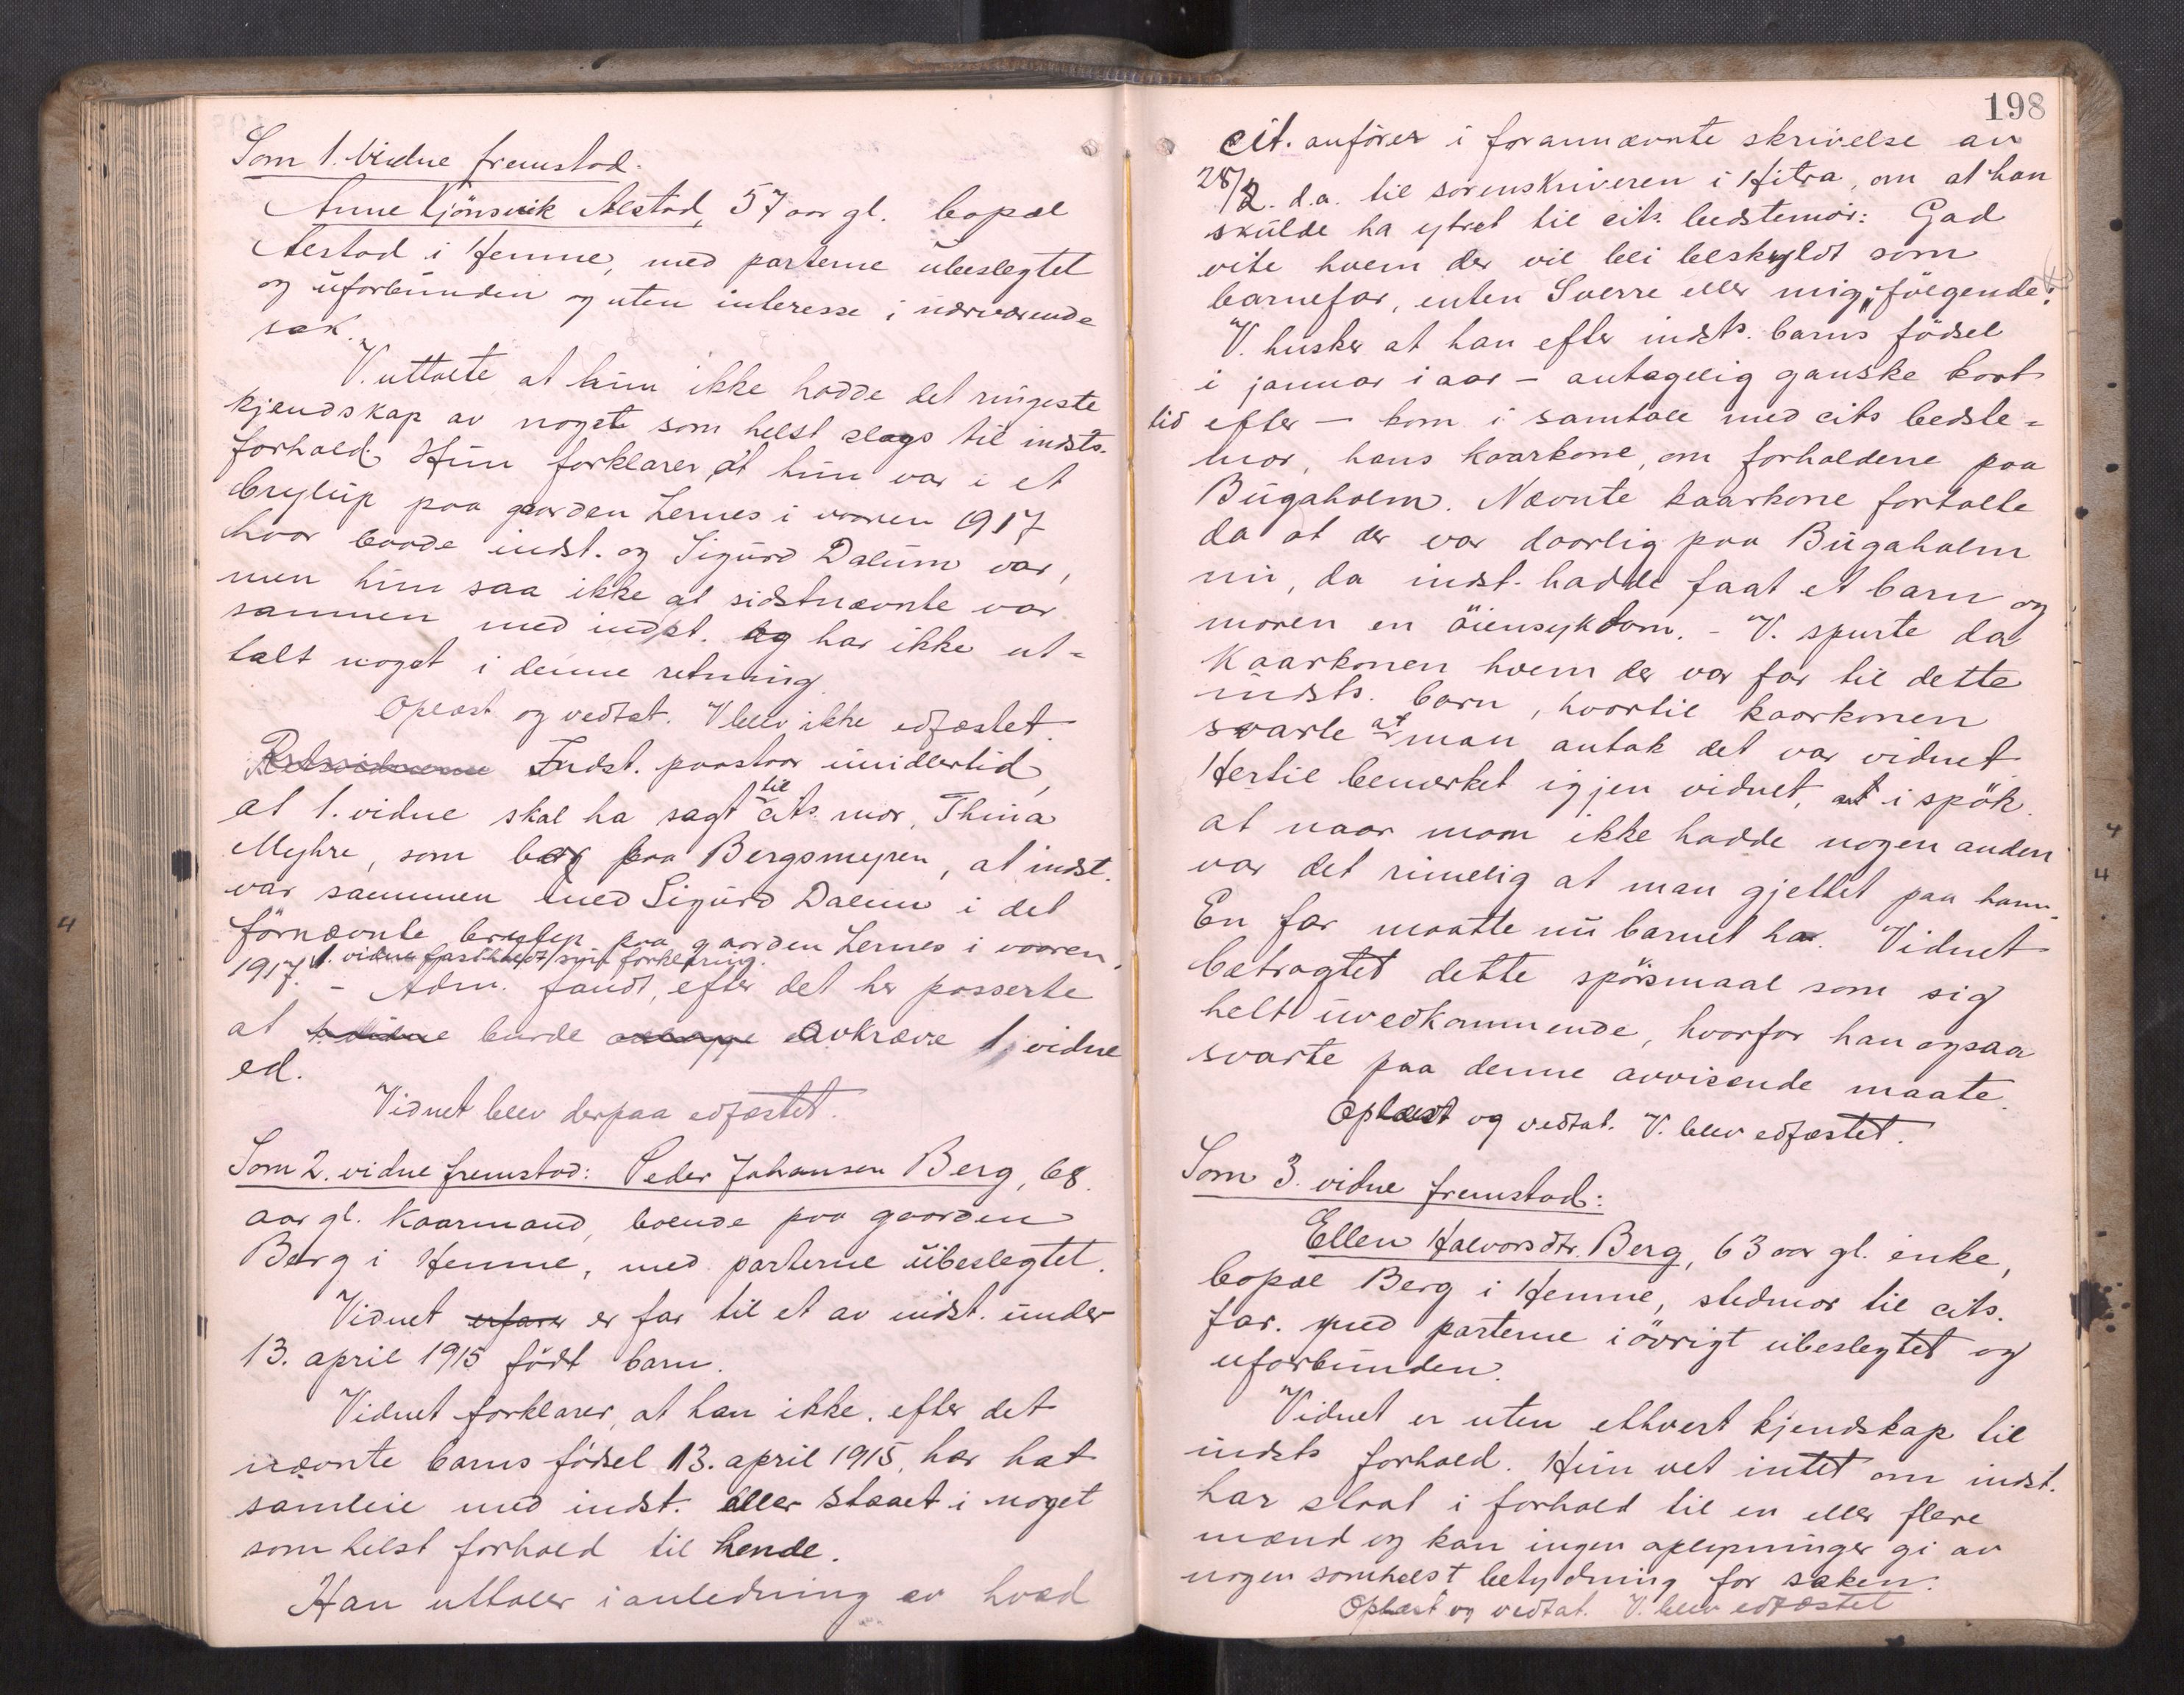 Som 1. vidne fremstod.
Anne Kjönsvik Alstad, 57 aar gl. bopæl
Alstad i Hemne, med parterne ubeslegtet
og uforbunden og uten interesse i nærværende
sak.
V. uttalte at hun ikke hadde det ringeste
kjendskap av noget som helst slags til indsts.
forhold. Hun forklarer at hun var i et
bryllup paa gaarden Lernes i vaaren 1917
hvor baade indst. og Sigurd Dalum var,
men hun saa ikke at sidstnævnte var
sammen med indst. og har ikke ut-
talt noget i denne retning.
Oplæst og vedtat. V. blev ikke edfæstet.
Retsvidnerne Indst. paastaar imidlertid,
at 1. vidne skal ha sagt til cits. mor, Thina
Myhre, som bor paa Bergsmyren, at indst.
var sammen med Sigurd Dalum i det
förnævnte bryllup paa gaarden Lernes i vaaren
1917. 1. vidne fastholdt sin forklaring.
- Adm. fandt, efter det her passerte
at 1. vidne burde avlægge avkræve 1. vidne
ed.
Vidnet blev derpaa edfæstet.
Som 2. vidne fremstod: Peder Johansen Berg, 68
aar gl. kaarmand, boende paa gaarden
Berg i Hemne, med parterne ubeslegtet.
Vidnet erfarer er far til et av indst. under
13. april 1915 födt barn.
Vidnet forklarer, at han ikke, efter det
nævnte barns födsel 13. april 1915, har hat
samleie med indst. eller staaet i noget
som helst forhold til hende.
Han uttaler i anledning av hvad
198
cit. anförer i forannævnte skrivelse av
28/2. d.a. til sorenskriveren i Hitra, om at han
skulde ha ytret til cits. bedstemor: Gad
vite hvem der vil bli beskyldt som
barnefar, enten Sverre eller mig, fölgende:
V. husker at han efter indsts. barns födsel
i januar i aar - antagelig ganske kort
tid efter - kom i samtale med cits bedste-
mor, hans kaarkone, om forholdene paa
Bugaholm. Nævnte kaarkone fortalte
da at der var daarlig paa Bugaholm
nu, da indst. hadde faat et barn og
moren en öiensykdom. - V. spurte da
kaarkonen hvem der var far til dette
indsts. barn, hvortil kaarkonen
svarte at man antok det var vidnet
Hertil bemerket igjen vidnet, at i spök
at naar man ikke hadde nogen anden
var det rimelig at man gjettet paa ham.
En far maatte nu barnet ha. Vidnet
betragtet dette spörsmaal som sig
helt uvedkommende, hvorfor han ogsaa
svarte paa denne avvisende maate.
Oplæst og vedtat. V. blev edfæstet.
Som 3. vidne fremstod:
Ellen Halvorsdtr. Berg, 63 aar gl. enke,
bopæl Berg i Hemne, stedmor til cits.
far. med parterne i övrigt ubeslegtet og
uforbunden.
Vidnet er uten ethvert kjendskap til
indsts forhold. Hun vet intet om indst.
har staat i forhold til en eller flere
mænd og kan ingen oplysninger gi av
nogen somhelst betydning for saken.
Oplæst og vedtat. V. blev edfæstet